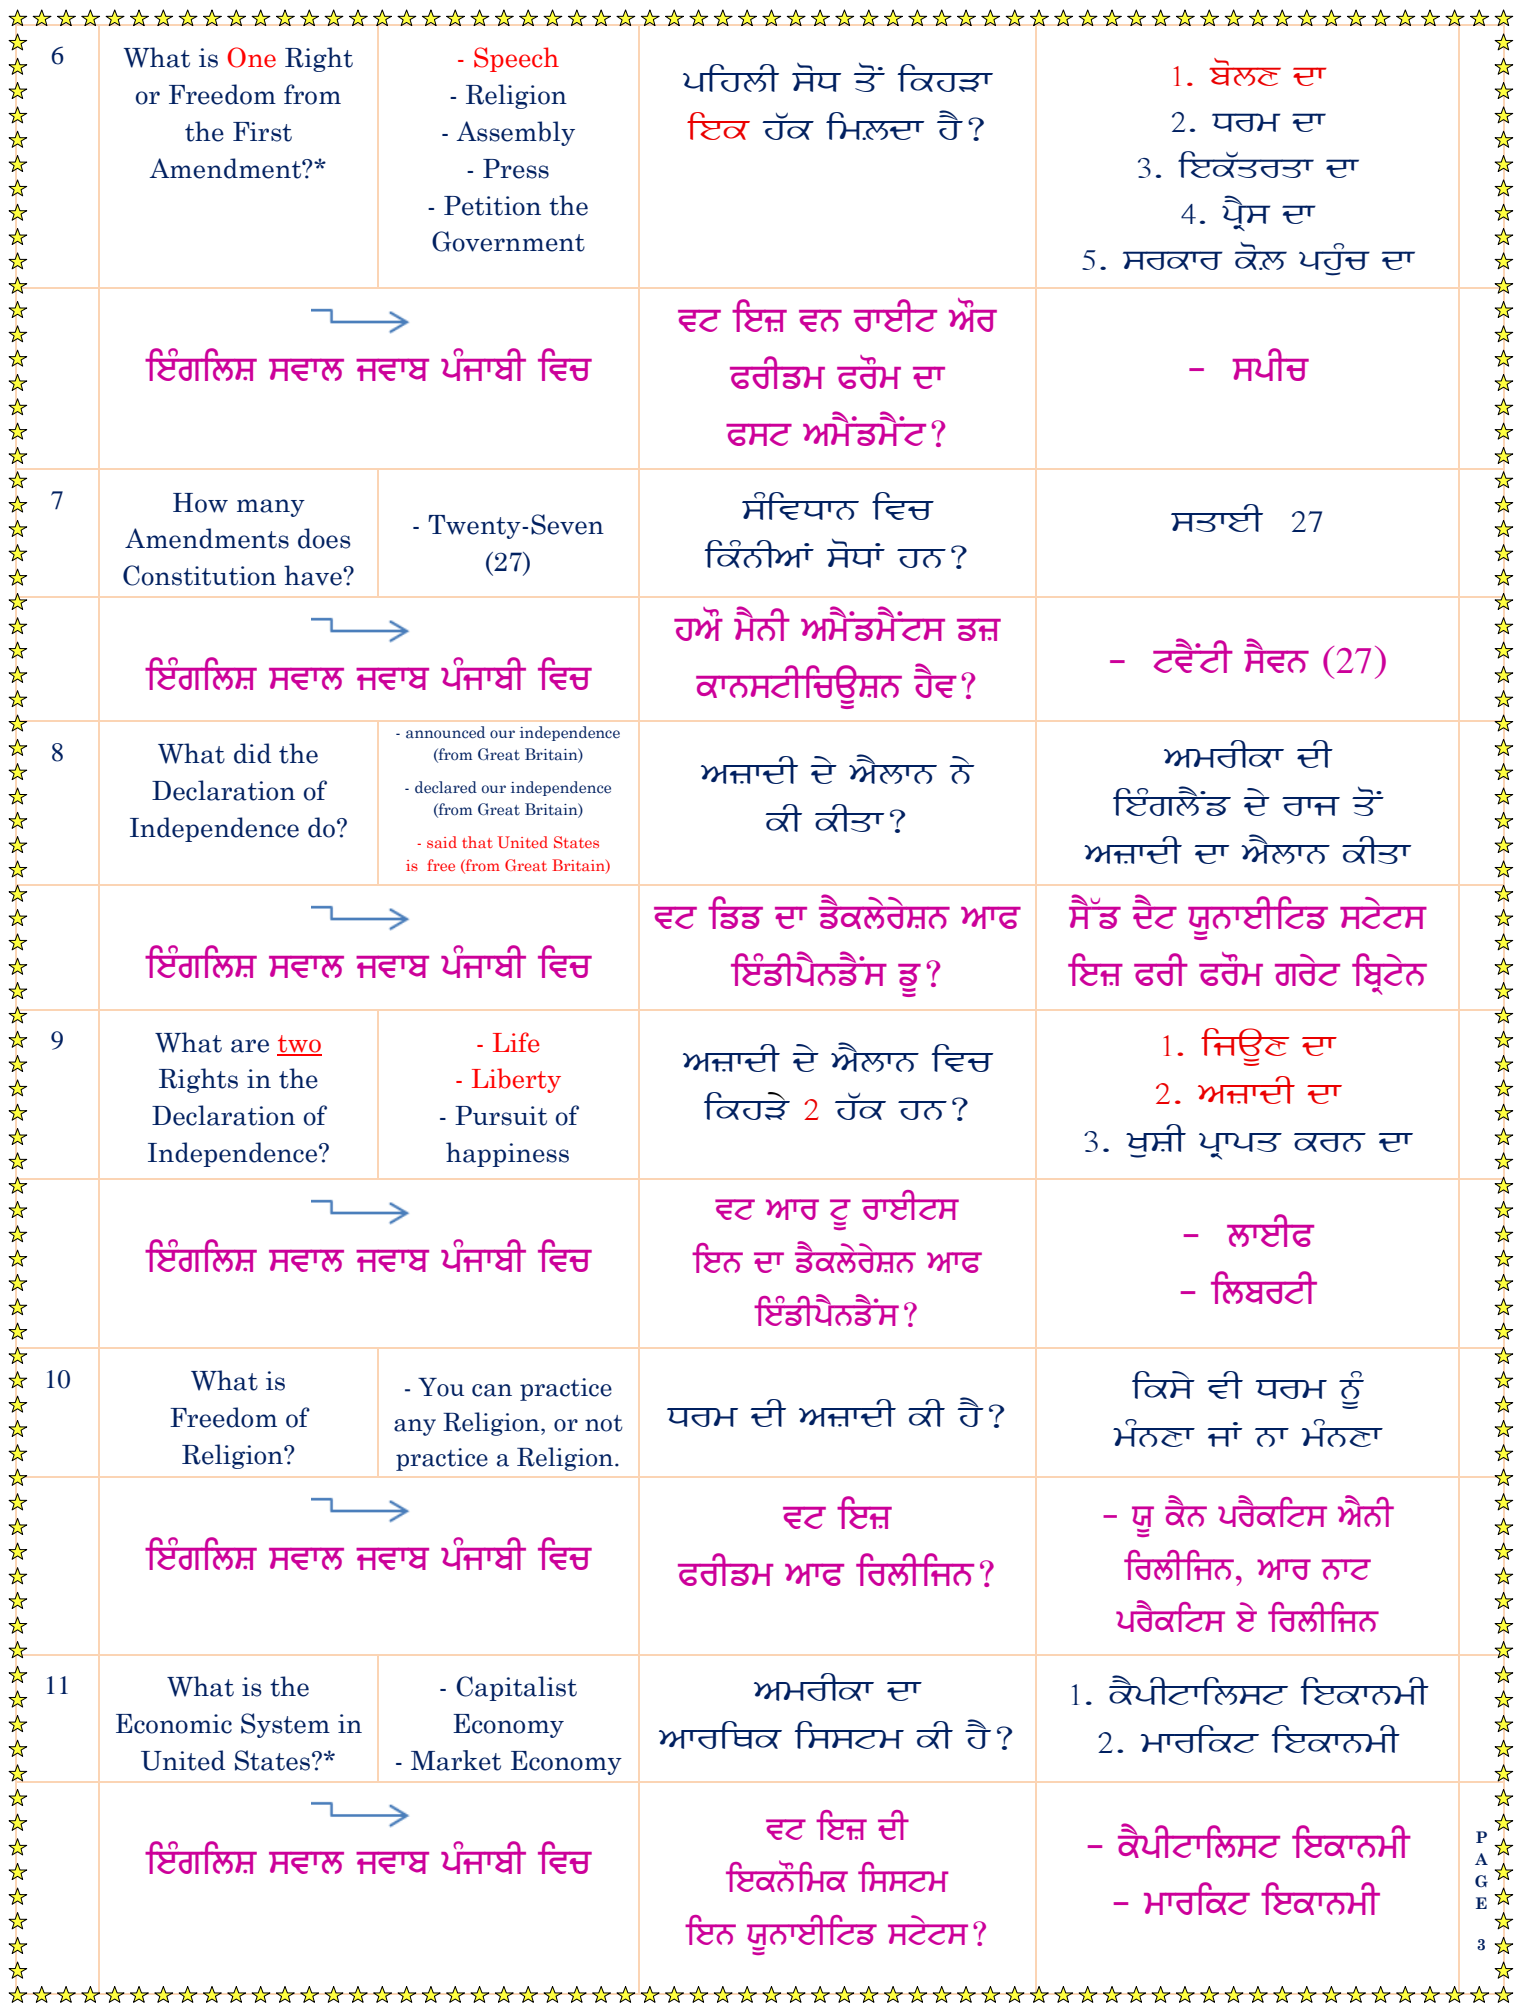 6
What is One Right
or Freedom from
the First
Amendment?*
- Speech
- Religion
- Assembly
- Press
- Petition the
Government
ਪਹਿਲੀ ਸੋਧ ਤੋਂ ਕਿਹੜਾ
ਇਕ ਹੱਕ ਮਿਲਦਾ ਹੈ?
1. ਬੋਲਣ ਦਾ
2. ਧਰਮ ਦਾ
3. ਇਕੱਤਰਤਾ ਦਾ
4. ਪ੍ਰੈਸ ਦਾ
5. ਸਰਕਾਰ ਕੋਲ ਪਹੁੰਚ ਦਾ
ਇੰਗਲਿਸ਼ ਸਵਾਲ ਜਵਾਬ ਪੰਜਾਬੀ ਵਿਚ
ਵਟ ਇਜ਼ ਵਨ ਰਾਈਟ ਔਰ
ਫਰੀਡਮ ਫਰੌਮ ਦਾ
ਫਸਟ ਅਮੈਂਡਮੈਂਟ?
- ਸਪੀਚ
7
How many
Amendments does
Constitution have?
- Twenty-Seven
(27)
ਸੰਵਿਧਾਨ ਵਿਚ
ਕਿੰਨੀਆਂ ਸੋਧਾਂ ਹਨ?
ਸਤਾਈ 27
ਇੰਗਲਿਸ਼ ਸਵਾਲ ਜਵਾਬ ਪੰਜਾਬੀ ਵਿਚ
ਹਔ ਮੈਨੀ ਅਮੈਂਡਮੈਂਟਸ ਡਜ਼
ਕਾਨਸਟੀਚਿਊਸ਼ਨ ਹੈਵ?
- ਟਵੈਂਟੀ ਸੈਵਨ (27)
8
What did the
Declaration of
Independence do?
- announced our independence
(from Great Britain)
- declared our independence
(from Great Britain)
- said that United States
is free (from Great Britain)
ਅਜ਼ਾਦੀ ਦੇ ਐਲਾਨ ਨੇ
ਕੀ ਕੀਤਾ?
ਅਮਰੀਕਾ ਦੀ
ਇੰਗਲੈਂਡ ਦੇ ਰਾਜ ਤੋਂ
ਅਜ਼ਾਦੀ ਦਾ ਐਲਾਨ ਕੀਤਾ
ਇੰਗਲਿਸ਼ ਸਵਾਲ ਜਵਾਬ ਪੰਜਾਬੀ ਵਿਚ
ਵਟ ਡਿਡ ਦਾ ਡੈਕਲੇਰੇਸ਼ਨ ਆਫ
ਇੰਡੀਪੈਨਡੈਂਸ ਡੂ?
ਸੈੱਡ ਦੈਟ ਯੂਨਾਈਟਿਡ ਸਟੇਟਸ
ਇਜ਼ ਫਰੀ ਫਰੌਮ ਗਰੇਟ ਬ੍ਰਿਟੇਨ
9
What are two
Rights in the
Declaration of
Independence?
- Life
- Liberty
- Pursuit of
happiness
ਅਜ਼ਾਦੀ ਦੇ ਐਲਾਨ ਵਿਚ
ਕਿਹੜੇ 2 ਹੱਕ ਹਨ?
1. ਜਿਊਣ ਦਾ
2. ਅਜ਼ਾਦੀ ਦਾ
3. ਖੁਸ਼ੀ ਪ੍ਰਾਪਤ ਕਰਨ ਦਾ
ਇੰਗਲਿਸ਼ ਸਵਾਲ ਜਵਾਬ ਪੰਜਾਬੀ ਵਿਚ
ਵਟ ਆਰ ਟੂ ਰਾਈਟਸ
ਇਨ ਦਾ ਡੈਕਲੇਰੇਸ਼ਨ ਆਫ
ਇੰਡੀਪੈਨਡੈਂਸ?
- ਲਾਈਫ
- ਲਿਬਰਟੀ
10
What is
Freedom of
Religion?
- You can practice
any Religion, or not
practice a Religion.
ਧਰਮ ਦੀ ਅਜ਼ਾਦੀ ਕੀ ਹੈ?
ਕਿਸੇ ਵੀ ਧਰਮ ਨੂੰ
ਮੰਨਣਾ ਜਾਂ ਨਾ ਮੰਨਣਾ
ਇੰਗਲਿਸ਼ ਸਵਾਲ ਜਵਾਬ ਪੰਜਾਬੀ ਵਿਚ
ਵਟ ਇਜ਼
ਫਰੀਡਮ ਆਫ ਰਿਲੀਜਿਨ?
- ਯੂ ਕੈਨ ਪਰੈਕਟਿਸ ਐਨੀ
ਰਿਲੀਜਿਨ, ਆਰ ਨਾਟ
ਪਰੈਕਟਿਸ ਏ ਰਿਲੀਜਿਨ
11
What is the
Economic System in
United States?*
- Capitalist
Economy
- Market Economy
ਅਮਰੀਕਾ ਦਾ
ਆਰਥਿਕ ਸਿਸਟਮ ਕੀ ਹੈ?
1. ਕੈਪੀਟਾਲਿਸਟ ਇਕਾਨਮੀ
2. ਮਾਰਕਿਟ ਇਕਾਨਮੀ
ਇੰਗਲਿਸ਼ ਸਵਾਲ ਜਵਾਬ ਪੰਜਾਬੀ ਵਿਚ
ਵਟ ਇਜ਼ ਦੀ
ਇਕਨੌਮਿਕ ਸਿਸਟਮ
ਇਨ ਯੂਨਾਈਟਿਡ ਸਟੇਟਸ?
- ਕੈਪੀਟਾਲਿਸਟ ਇਕਾਨਮੀ
- ਮਾਰਕਿਟ ਇਕਾਨਮੀ
PAGE 3